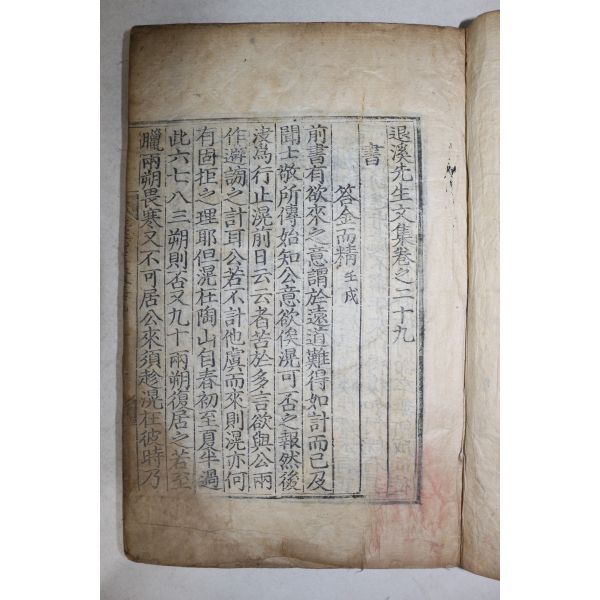 退溪先生文集卷之二十九
書
答金而精 壬戌
前書有欲來之意謂於遠道難得如計而已及
聞士敬所傳始知公意欲俟滉可否之報然後
決爲行止滉前日云云者苦於多言欲與公兩
作避謗之計耳公若不計他虞而來則滉亦何
有固拒之理耶但滉在陶山自春初至夏半過
此六七八三朔則否又九十兩朔復居之若至
臘兩朔畏寒又不可居公來須趁滉在彼時乃